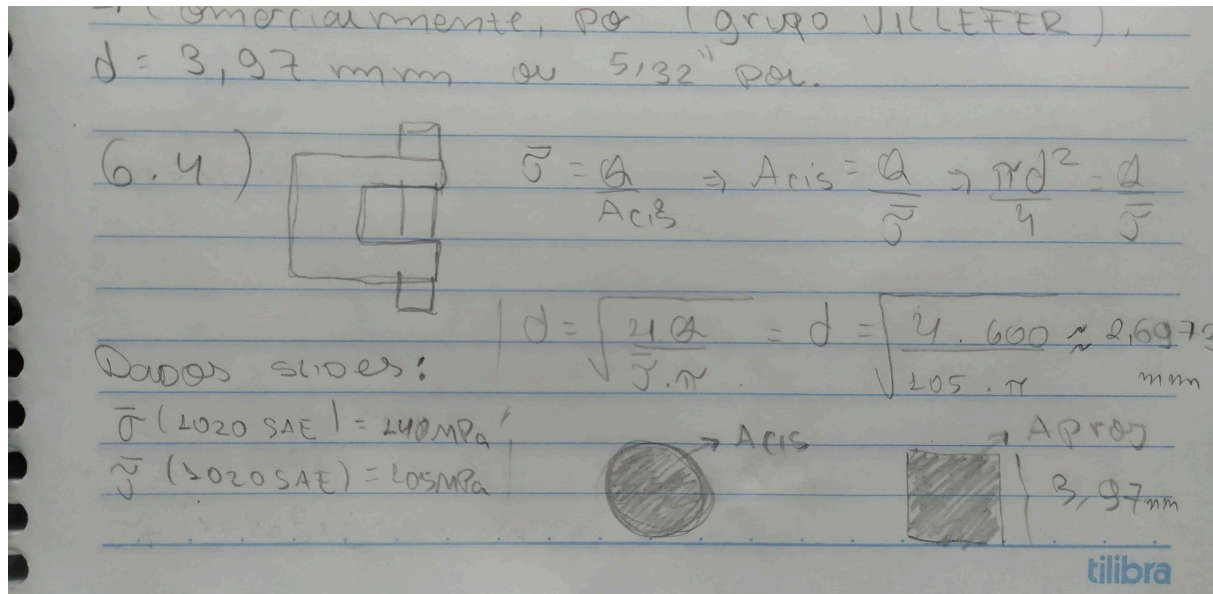 Comercialmente, por (grupo VILLEFER),
d = 3,97 mm ou 5,32" pol.
6.4) τ̄ = Q/Acis ⇒ Acis = Q/τ̄ ⇒ πd²/4 = Q/τ̄
d = √(4.Q/τ̄.π) = d = √(4.600/105.π) ≈ 2,6973 mm
Dados slides:
σ̄ (1020 SAE) = 140MPa
τ̄ (1020 SAE) = 105MPa
Acis
Aproj
3,97mm
tilibra